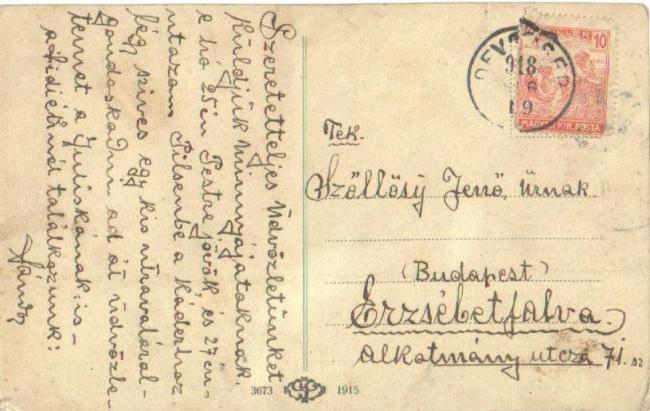 Szeretetteljes üdvözletünket
küldjük mindnyájatoknak.
e hó 25 én Pestre jövök, és 27 én
utazom Pilsenbe a káderhoz.
légy szives egy kis útravalóral
gondoskodni, ad át üdvözle-
temet a Juliskának is-
a találkozunk:
Sándor
FILLÉR 10
918
19
MAGYAR KIR. POSTA
Tek.
Szőllősy Jenő, Úrnak
(Budapest)
Erzsébetfalva.
Alkotmány utcza 71. sz
3673 1915